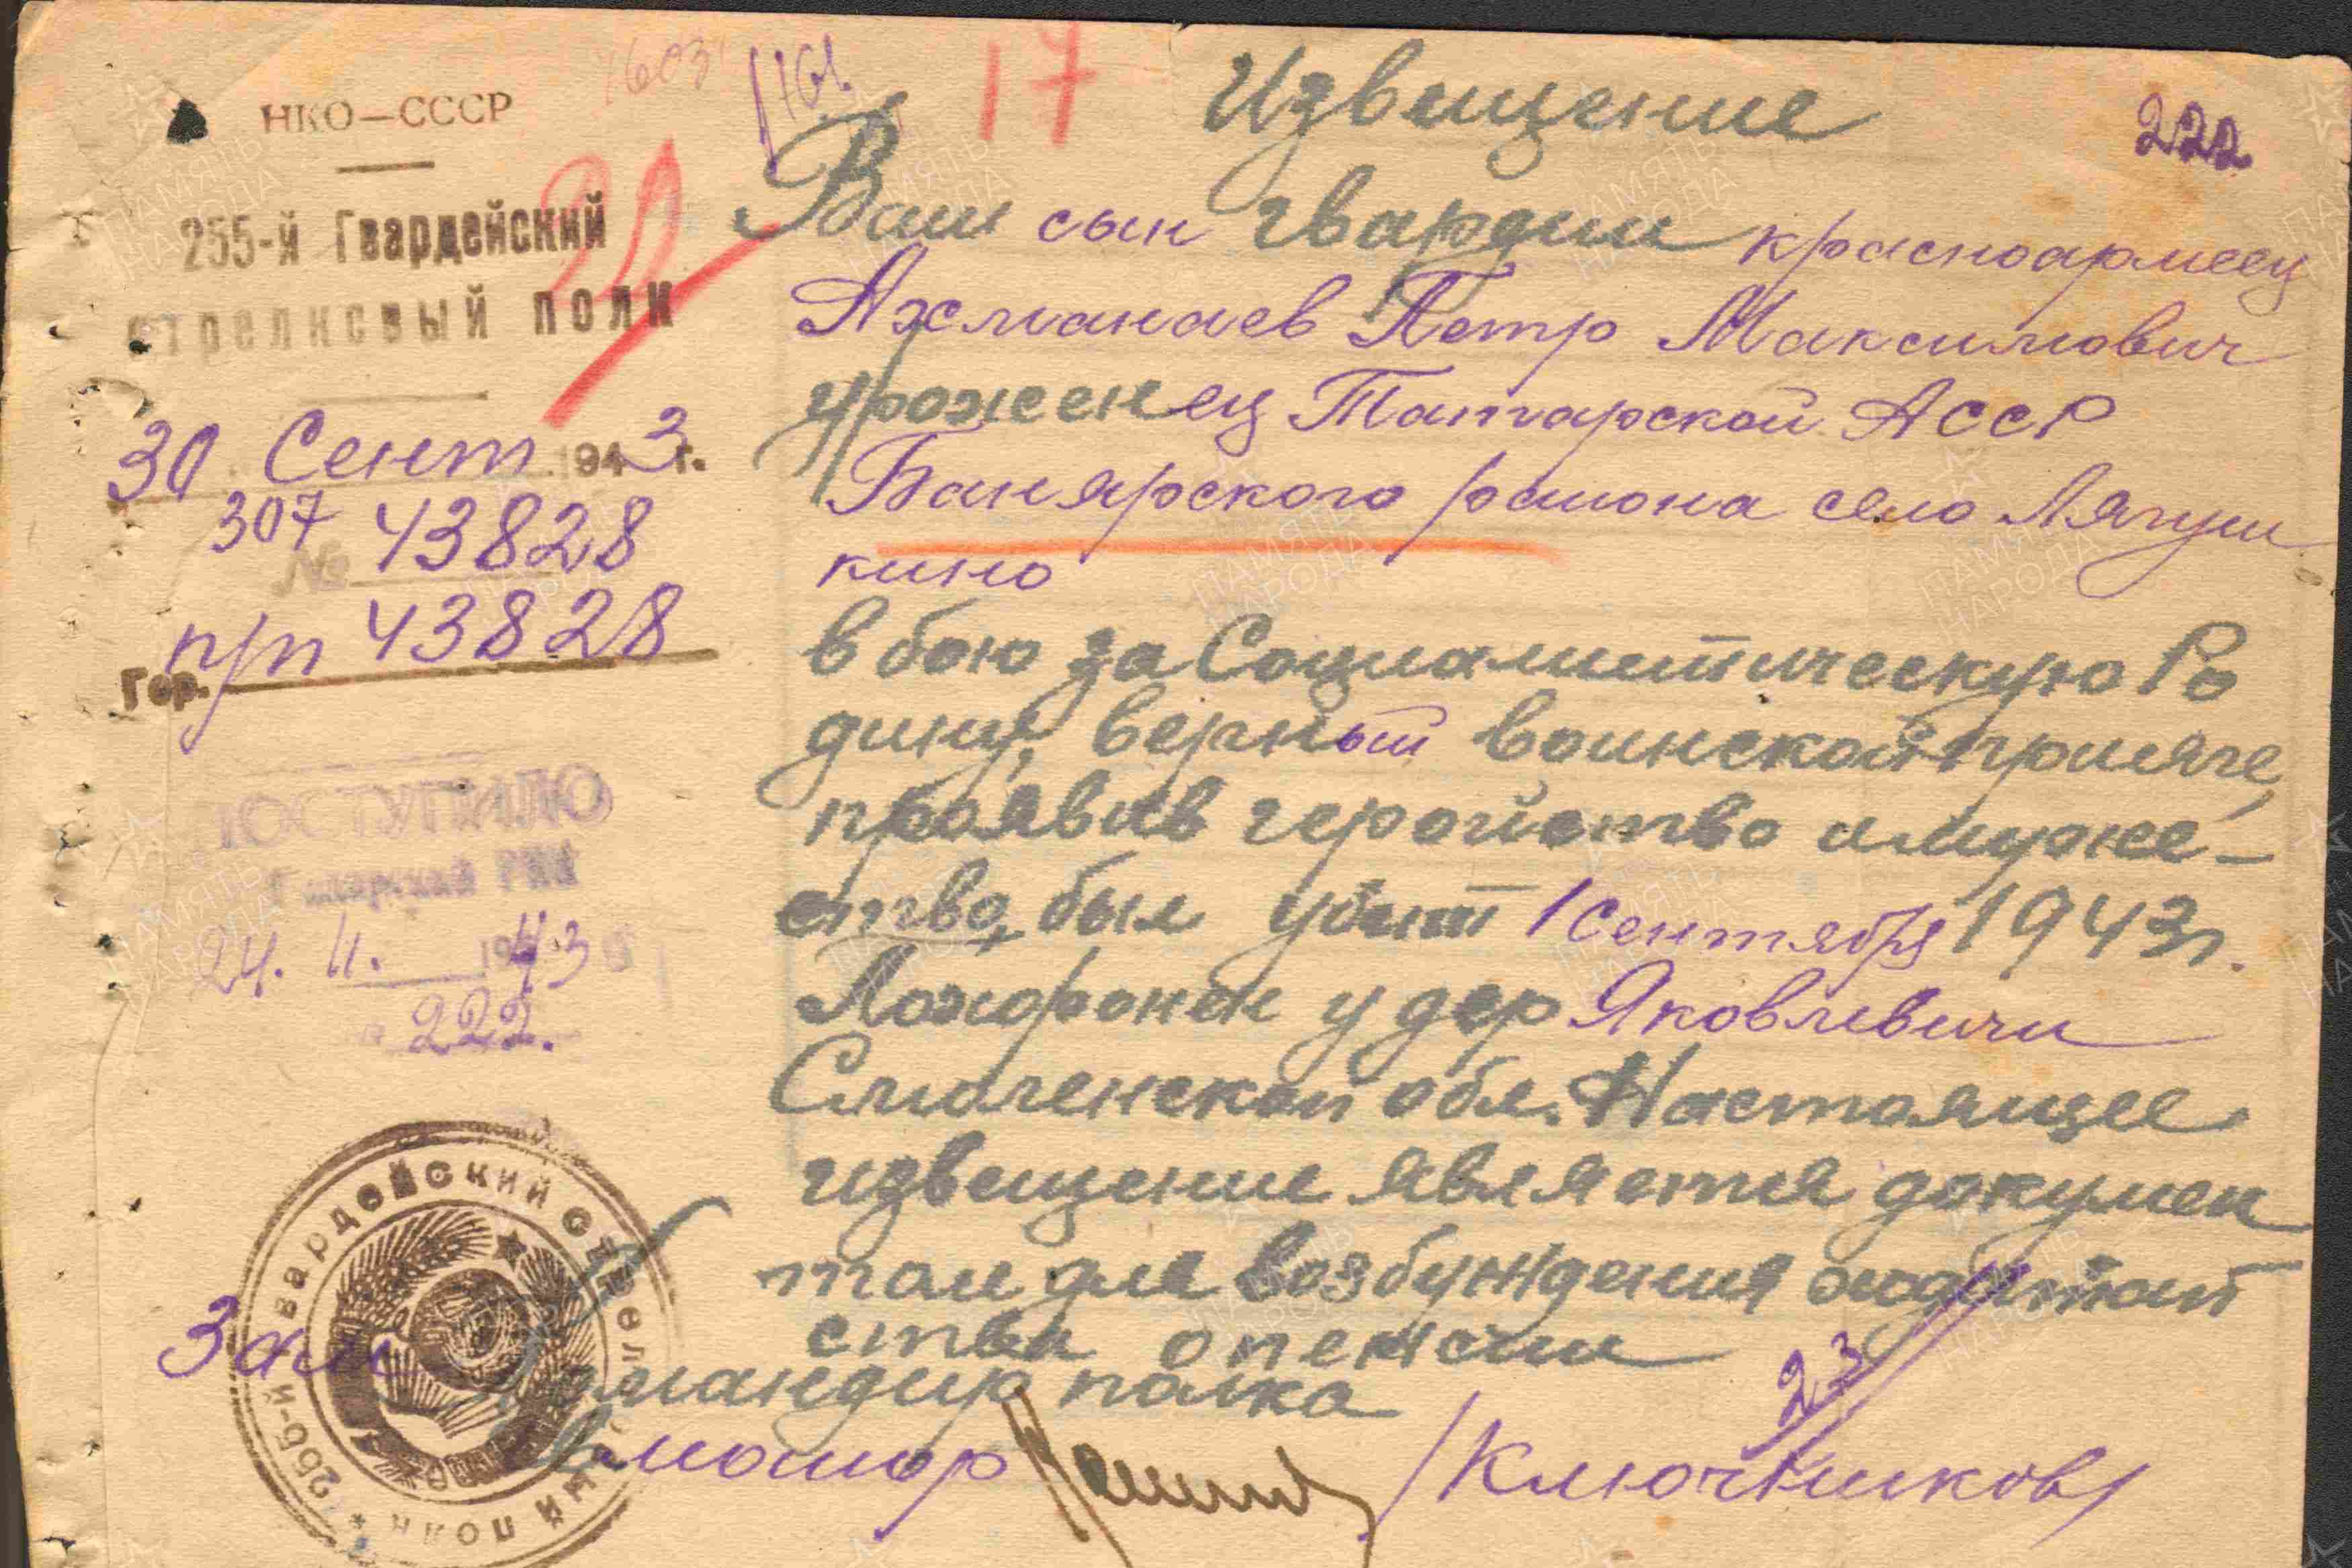 НКО—СССР
255-й Гвардейский
стрелковый полк
30 Сент 1943 г.
307 43828
№
п/п 43828
Гор.
ПОСТУПИЛО
РВК
24. 11. 1943
222.
255-й гвардейский стрелковый полк
1603
1761
17
222
Извещение
Ваш сын гвардии красноармеец
Ахманаев Петр Максимович
урожен ец Татарской АССР
Банярского района село Лягуш
кино
в бою за Социалистическую Ро
дину, верный воинской присяге,
проявив геройство и муже-
ство, был убит 1 сентября 1943 г.
Похоронен у дер Яковлевичи
Смоленской обл. Настоящее
извещение является докумен
том для возбуждения ходатай
ства о пенсии
Зам Командир полка
г. майор /Ключников/
23
ПАМЯТЬ НАРОДА